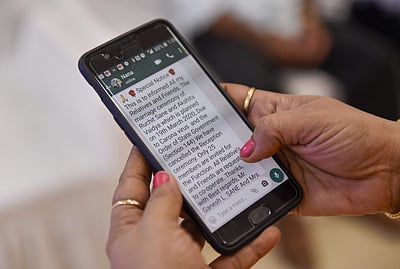 Nana
online
🙏🌹 Special Notice🌹
This is to informed All my
Relatives and Friends. The
marriage ceremony of
Rucha Sane and Akshita
Vaidya which is planned
on 19th March 2020. Due
to Carona virus and the
Order of State Government
(Section 144) We have
cancelled the Reception
ceremony. Only 25
members are invited for
the Function. All Relatives
and Friends are request
to co-operate. Thanks,
with Best Regards, Mr.
Ganesh L. SANE And Mrs.
Type a message...